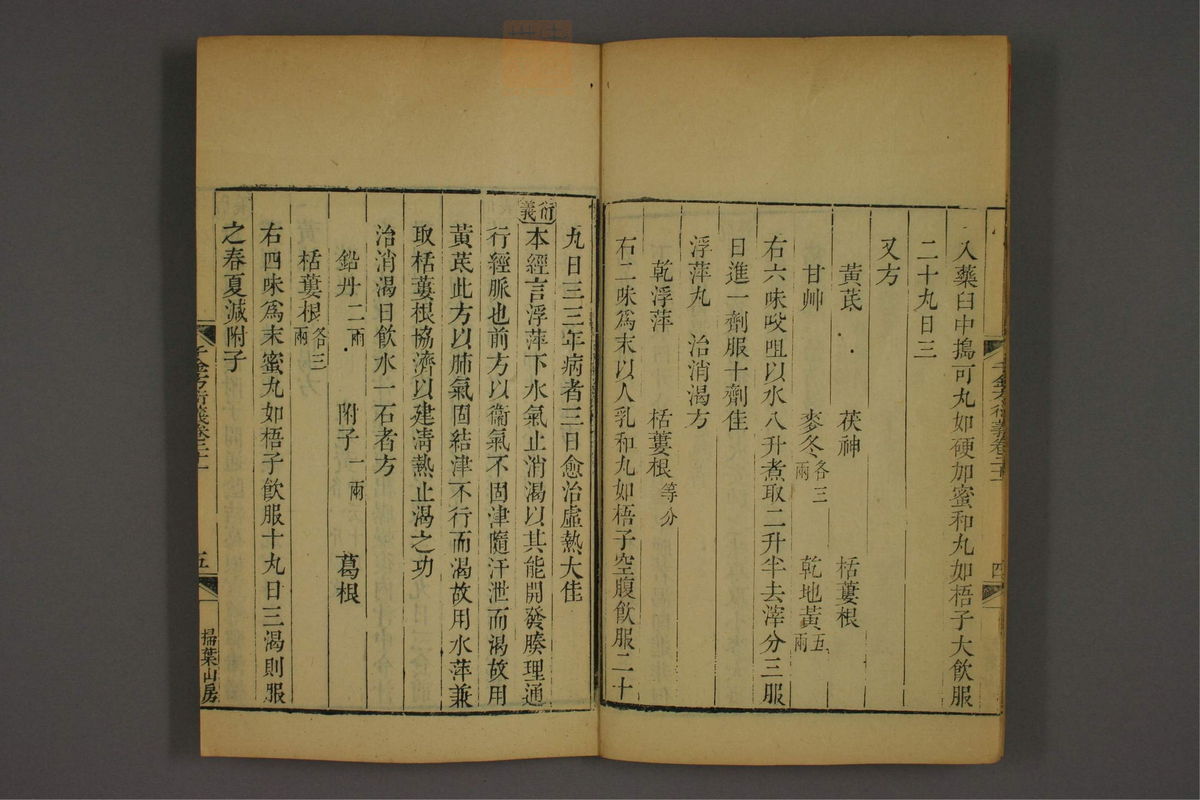 入藥臼中搗可丸如硬加蜜和丸如梧子大飲服
二十丸日三
又方
黃芪 茯神 栝蔞根
甘艸 麥冬各三兩 乾地黃五兩
右六味㕮咀以水八升煮取二升半去滓分三服
日進一劑服十劑佳
浮萍丸 治消渴方
乾浮萍 栝蔞根等分
右二味爲末以人乳和丸如梧子空腹飲服二十
千金方衍義卷二十一
四
九日三三年病者三日愈治虛熱大佳
衍義
本經言浮萍下水氣止消渴以其能開發腠理通
行經脈也前方以衞氣不固津隨汗泄而渴故用
黃芪此方以肺氣固結津不行而渴故用水萍兼
取栝蔞根協濟以建淸熱止渴之功
治消渴日飲水一石者方
鉛丹二兩 附子一兩 葛根
栝蔞根各三兩
右四味爲末蜜丸如梧子飲服十丸日三渴則服
之春夏減附子
千金方衍義卷二十一
五
掃葉山房